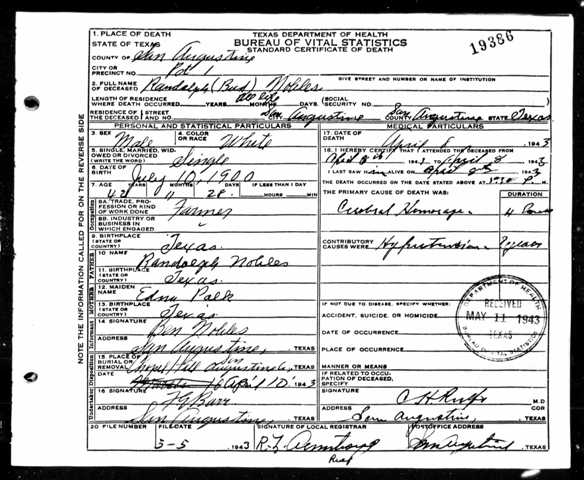 19386
TEXAS DEPARTMENT OF HEALTH
BUREAU OF VITAL STATISTICS
STANDARD CERTIFICATE OF DEATH
NOTE THE INFORMATION CALLED FOR ON THE REVERSE SIDE
1. PLACE OF DEATH
STATE OF TEXAS
COUNTY OF San Augustine
CITY OR PRECINCT NO. Pct 1
GIVE STREET AND NUMBER OR NAME OF INSTITUTION
2. FULL NAME OF DECEASED Randolph (Bud) Nobles
LENGTH OF RESIDENCE WHERE DEATH OCCURRED YEARS MONTHS DAYS
SOCIAL SECURITY NO.
RESIDENCE OF THE DECEASED STREET San Augustine COUNTY San Augustine STATE Texas
PERSONAL AND STATISTICAL PARTICULARS
3. SEX Male
4. COLOR OR RACE White
5. SINGLE, MARRIED, WIDOWED OR DIVORCED (WRITE THE WORD) Single
6. DATE OF BIRTH July 10, 1900
7. AGE 42 YEARS MONTHS 28 DAYS IF LESS THAN 1 DAY HOURS MIN
Occupation
8A. TRADE, PROFESSION OR KIND OF WORK DONE Farmer
8B. INDUSTRY OR BUSINESS IN WHICH ENGAGED
9. BIRTHPLACE (STATE OR COUNTRY) Texas
FATHER
10 NAME Randolph Nobles
11. BIRTHPLACE (STATE OR COUNTRY) Texas
MOTHER
12. MAIDEN NAME Edna Palk
13. BIRTHPLACE (STATE OR COUNTRY) Texas
Informant
14 SIGNATURE Ben Nobles
ADDRESS San Augustine, TEXAS
15 PLACE OF BURIAL OR REMOVAL Chapel Hill San Augustine Co, TEXAS
DATE April 10 1943
Undertaker
16 SIGNATURE
ADDRESS San Augustine TEXAS
MEDICAL PARTICULARS
17. DATE OF DEATH April 8 1943
18. I HEREBY CERTIFY THAT I ATTENDED THE DECEASED FROM
April 8th 1943 TO April 8 1943
I LAST SAW him ALIVE ON April 8th 1943
THE DEATH OCCURRED ON THE DATE STATED ABOVE AT M.
THE PRIMARY CAUSE OF DEATH WAS: DURATION
Cerebral 4
CONTRIBUTORY CAUSES WERE Hypertension years
IF NOT DUE TO DISEASE, SPECIFY WHETHER:
ACCIDENT, SUICIDE, OR HOMICIDE
DATE OF OCCURRENCE
PLACE OF OCCURRENCE
MANNER OR MEANS
IF RELATED TO OCCUPATION OF DECEASED, SPECIFY
DEPARTMENT OF HEALTH
RECEIVED
MAY 11 1943
TEXAS
BUREAU VITAL STATISTICS
SIGNATURE M.D COR
ADDRESS San Augustine, TEXAS
20 FILE NUMBER
FILE DATE 5-5 1943
SIGNATURE OF LOCAL REGISTRAR R.L. Armstrong
POSTOFFICE ADDRESS San Augustine, TEXAS